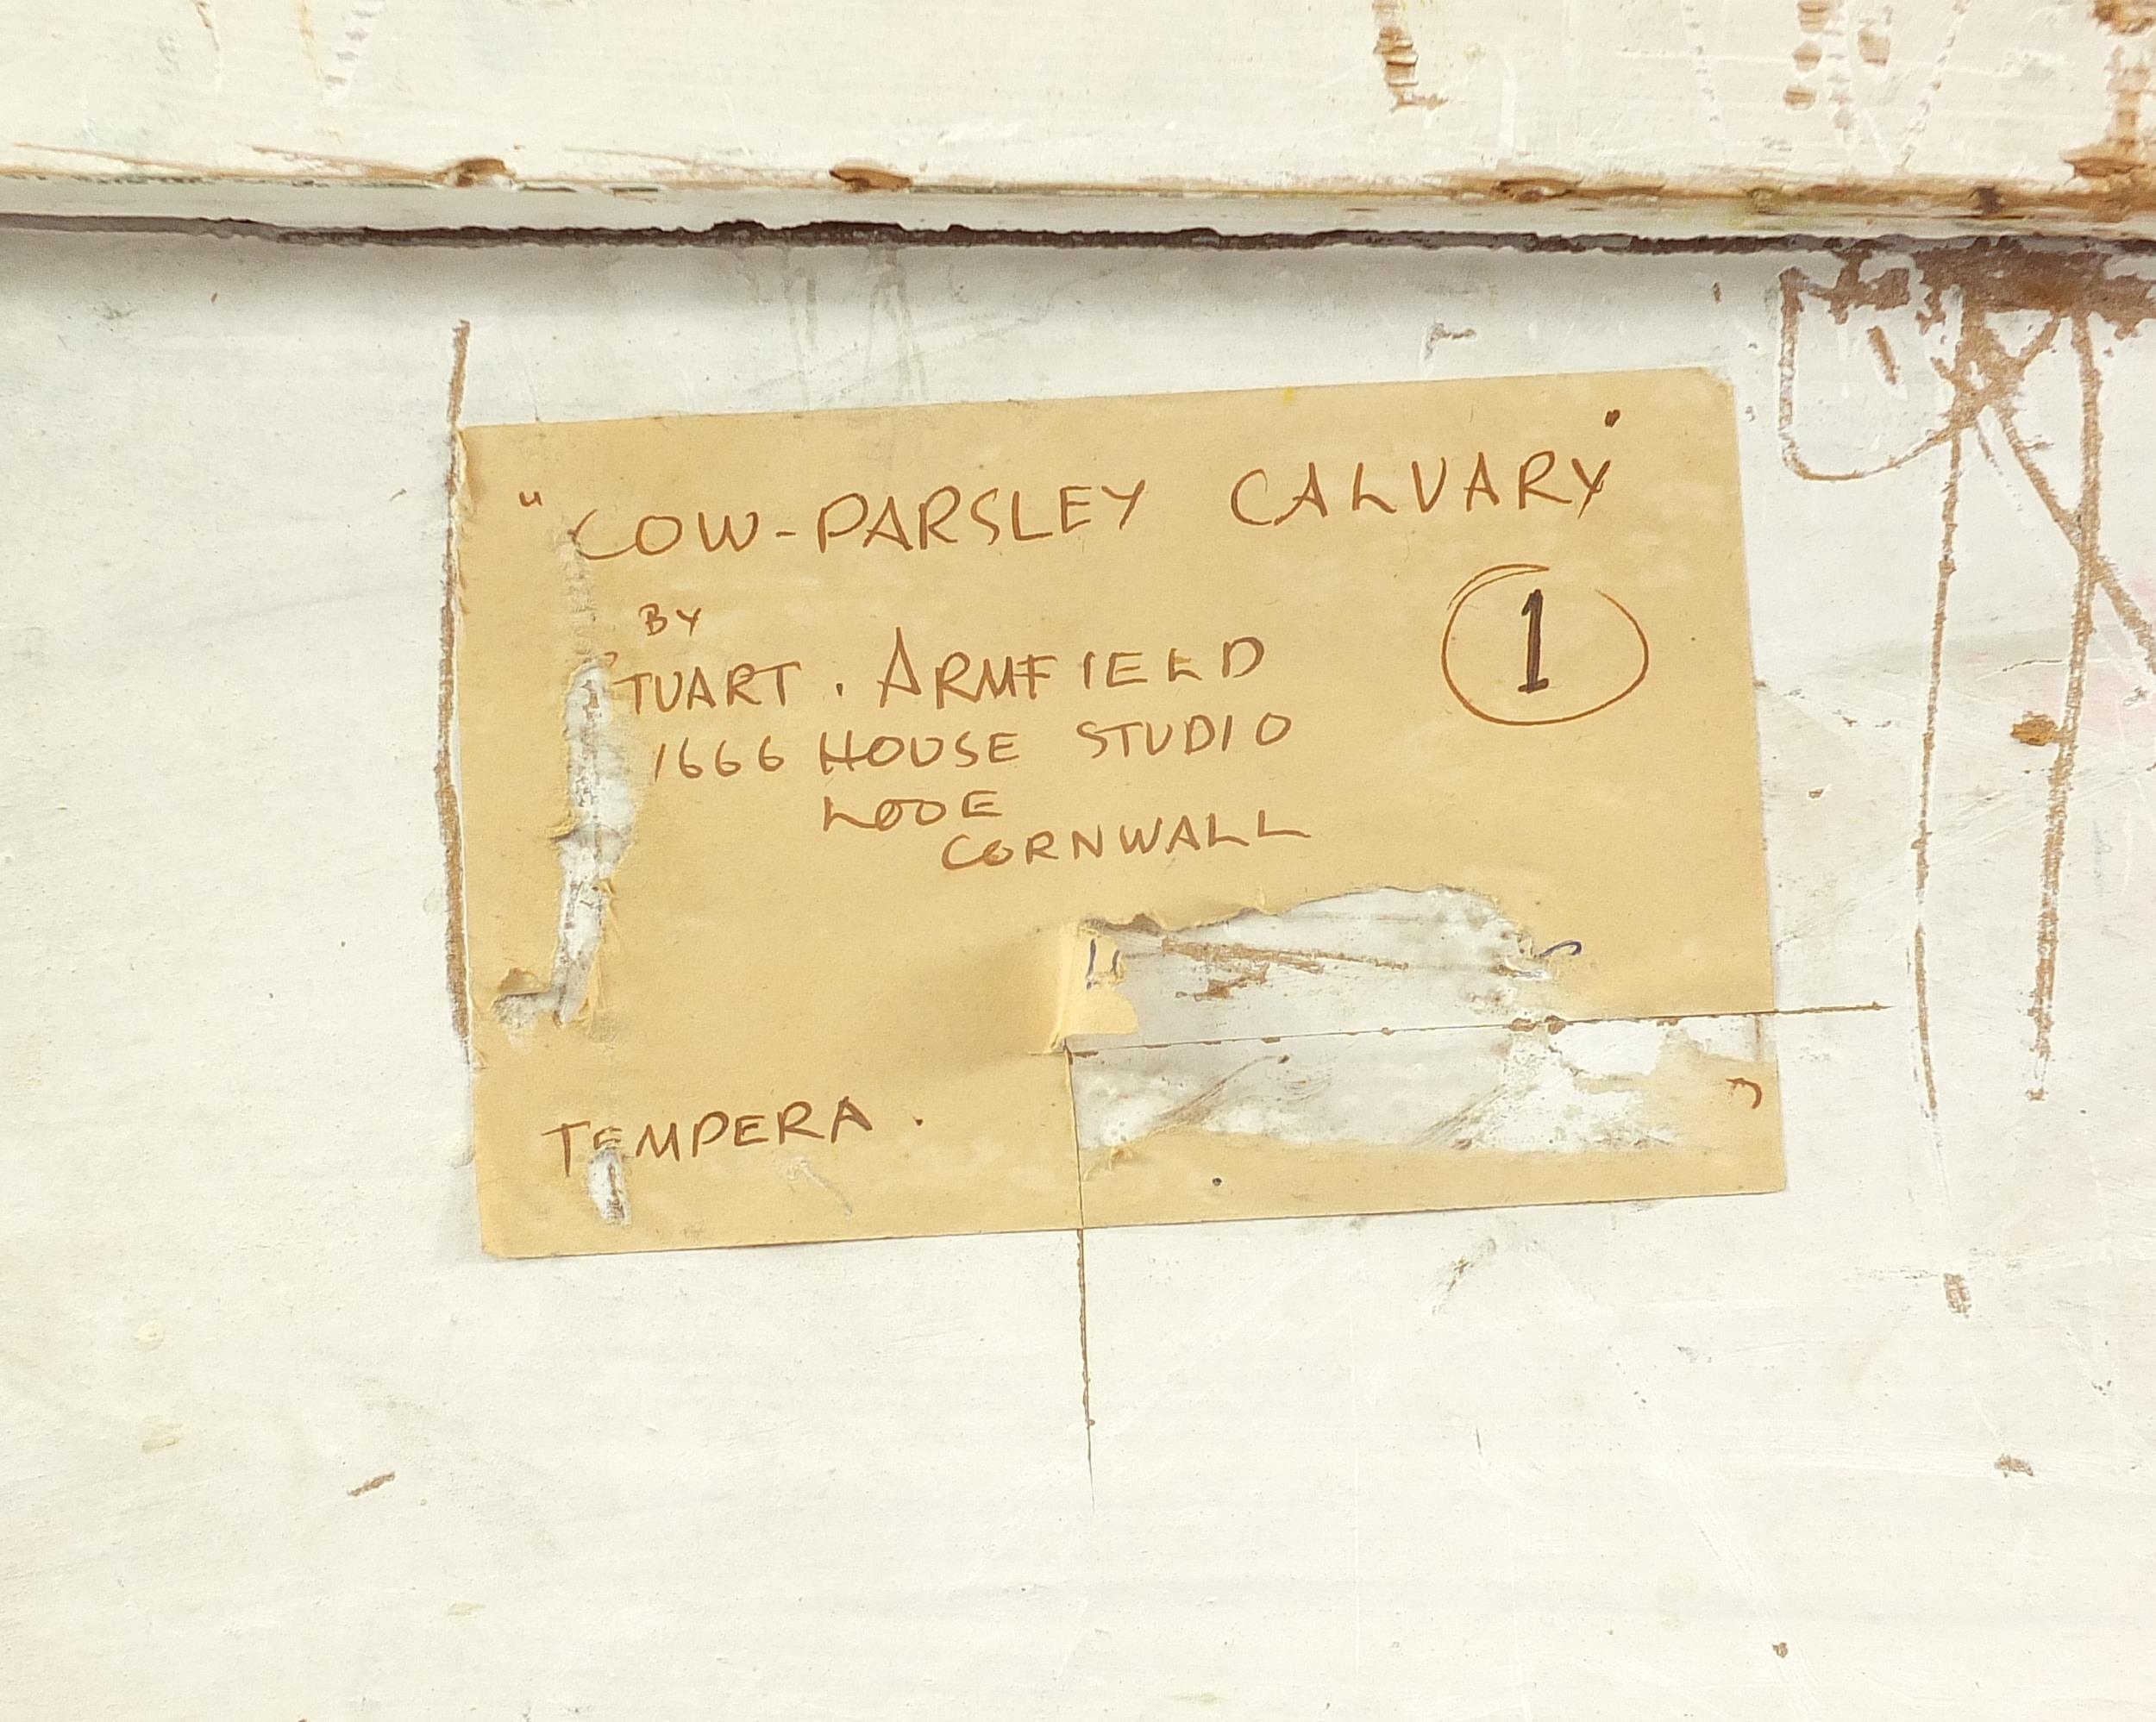 "COW-PARSLEY CALVARY"
BY
TUART. ARMFIELD
1
1666 HOUSE STUDIO
LOOE
CORNWALL
TEMPERA.